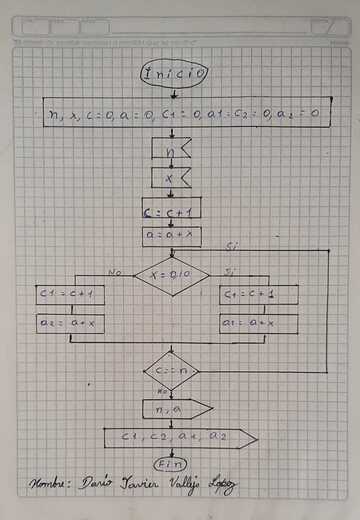 Inicio
n, x, c = 0, a = 0, c1 = 0, a1 = c2 = 0, a2 = 0
n
x
c = c+1
a = a+x
Si
No
Si
c1 = c+1
c1 = c+1
a2 = a+x
a1 = a+x
c == n
No
n, a
c1, c2, a1, a2
Fin
Nombre: Darío Javier Vallejo Lopez